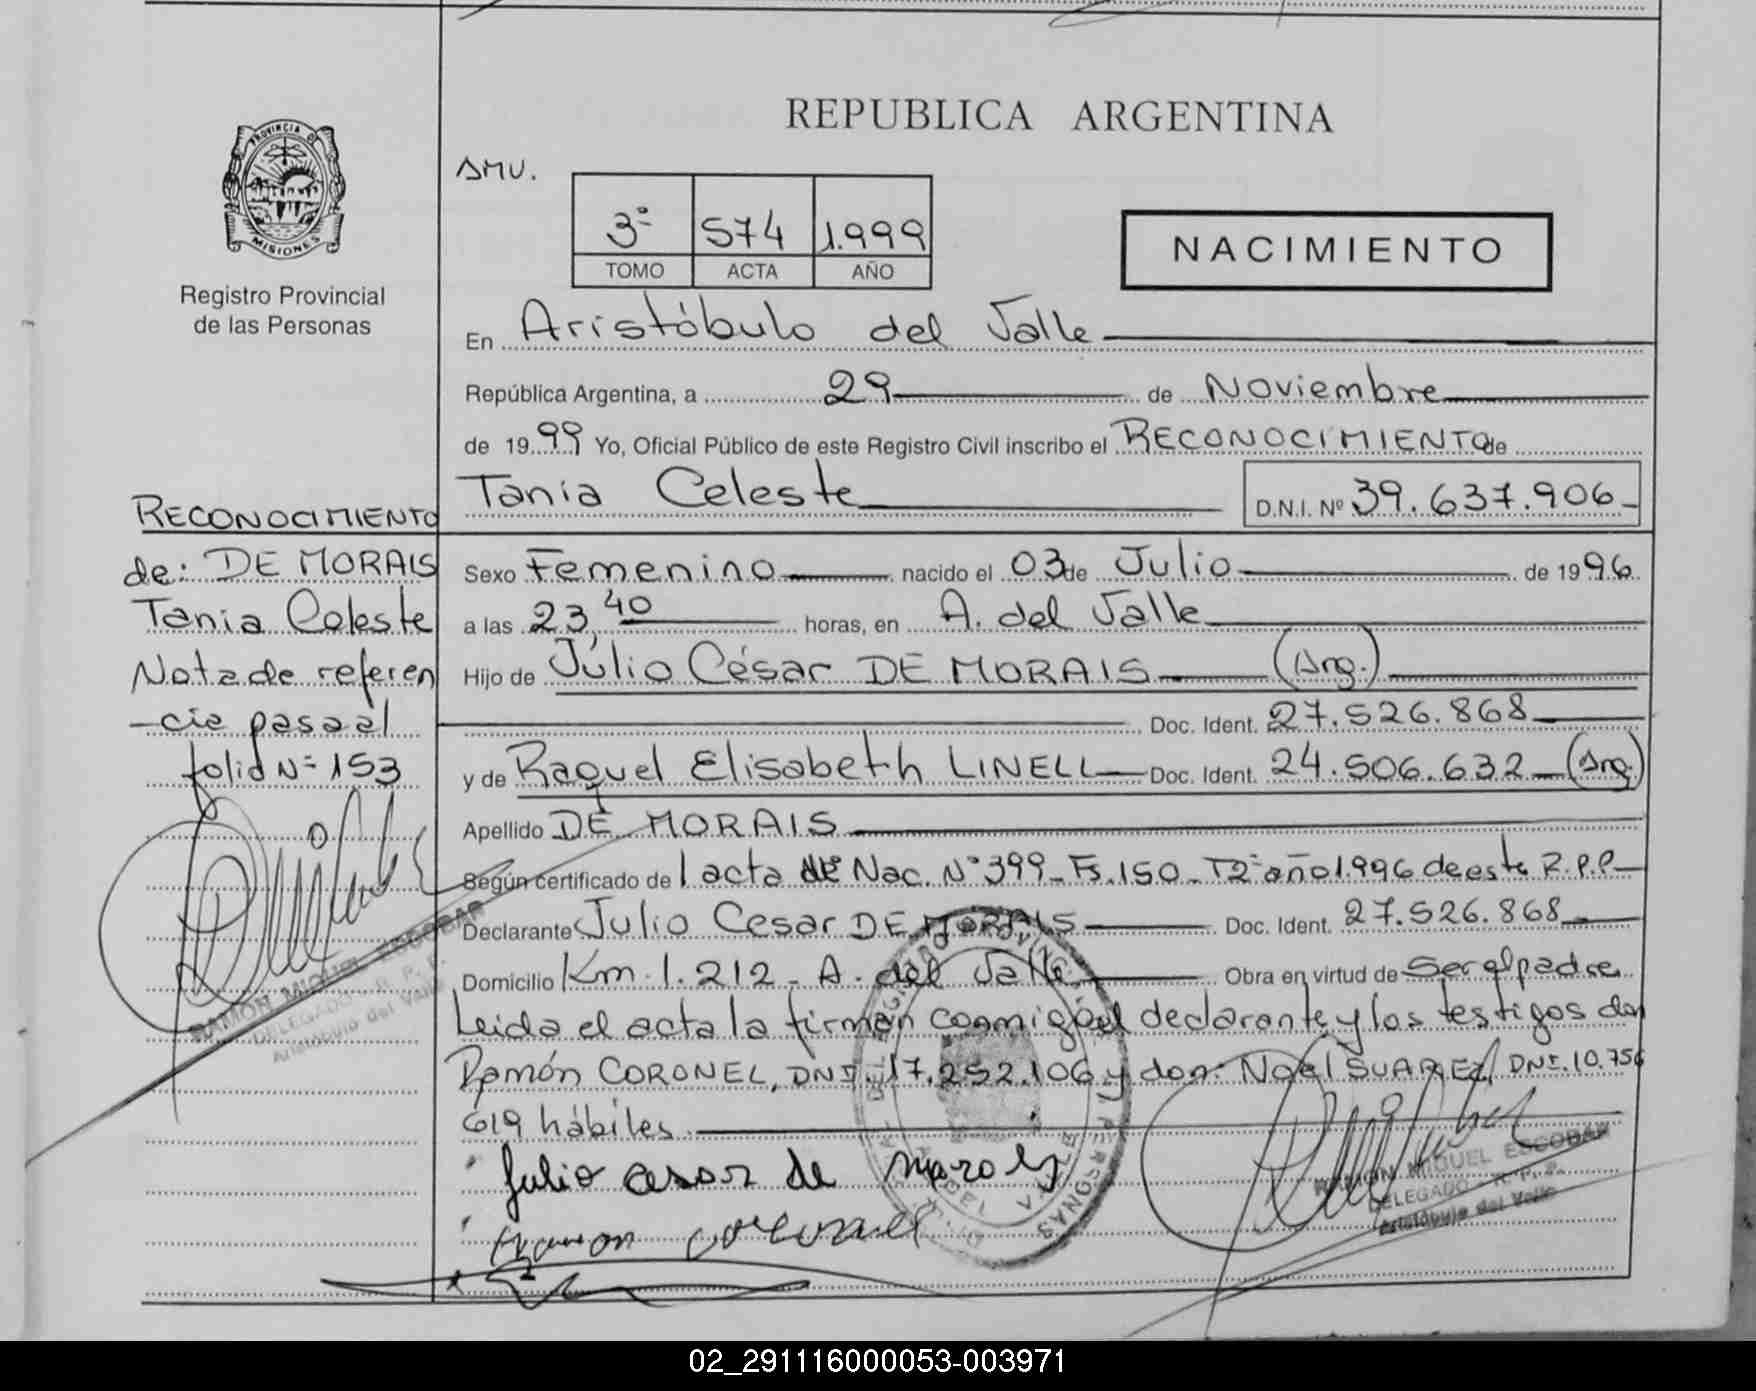 REPUBLICA ARGENTINA
PROVINCIA DE
MISIONES
Registro Provincial
de las Personas
SMV.
3º 574 1.999
TOMO ACTA AÑO
NACIMIENTO
En Aristóbulo del Valle
República Argentina, a 29 de Noviembre
de 19 99 Yo, Oficial Público de este Registro Civil inscribo el RECONOCIMIENTO de
Tania Celeste D.N.I. Nº 39.637.906
RECONOCIMIENTO
de: DE MORAIS
Tania Celeste
Nota de referen
-cia pasa al
folio Nº 153
RAMON MIGUEL ESCOBAR
DELEGADO - R. P. P.
Aristóbulo del Valle
Sexo Femenino nacido el 03 de Julio de 1996
a las 23,40 horas, en A. del Valle
Hijo de Júlio César DE MORAIS (Arg.)
Doc. Ident. 27.526.868
y de Raquel Elisabeth LINELL Doc. Ident. 24.506.632 (Arg.)
Apellido DE MORAIS
Según certificado de l acta de Nac. Nº 399 - Fs. 150 - Tº 2º año 1.996 de este R.P.P
Declarante Julio Cesar DE MORAIS Doc. Ident. 27.526.868
Domicilio Km. 1.212 - A. del Valle Obra en virtud de Ser el padre
Leida el acta la firman conmigo el declarante y los testigos don
Ramón CORONEL, DNI. 17.252.106 y don: Noel SUAREZ, DNI. 10.756
619 hábiles
Julio cesar de
ramon coronel
RAMON MIGUEL ESCOBAR
DELEGADO - R. P. P.
Aristóbulo del Valle
02_291116000053-003971